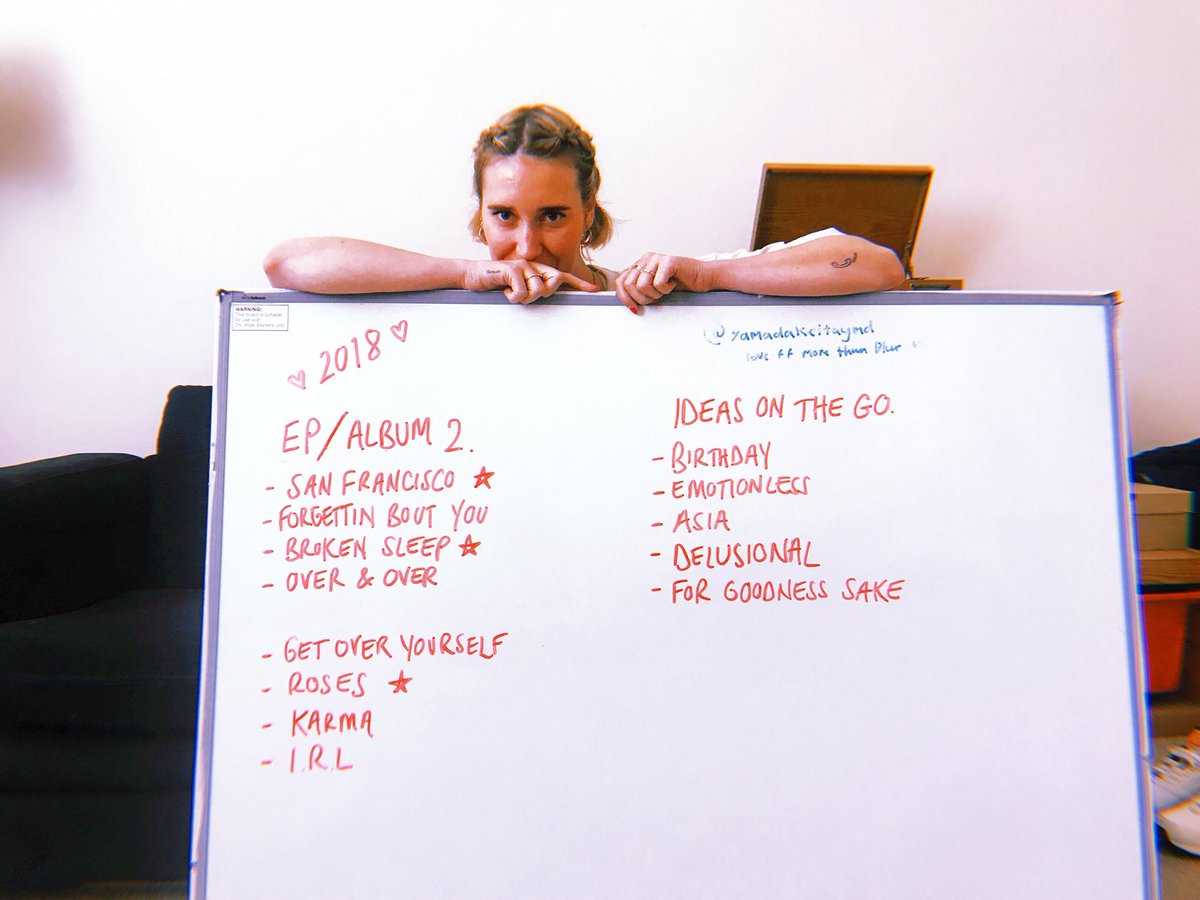 WARNING:
This board is suitable
for use with
Dry Wipe Markers only
2018
@yamadakeitaymd
love FF more than Blur
EP/ALBUM 2.
- SAN FRANCISCO ★
- FORGETTIN BOUT YOU
- BROKEN SLEEP ★
- OVER & OVER
- GET OVER YOURSELF
- ROSES ★
- KARMA
- I.R.L
IDEAS ON THE GO.
- BIRTHDAY
- EMOTIONLESS
- ASIA
- DELUSIONAL
- FOR GOODNESS SAKE